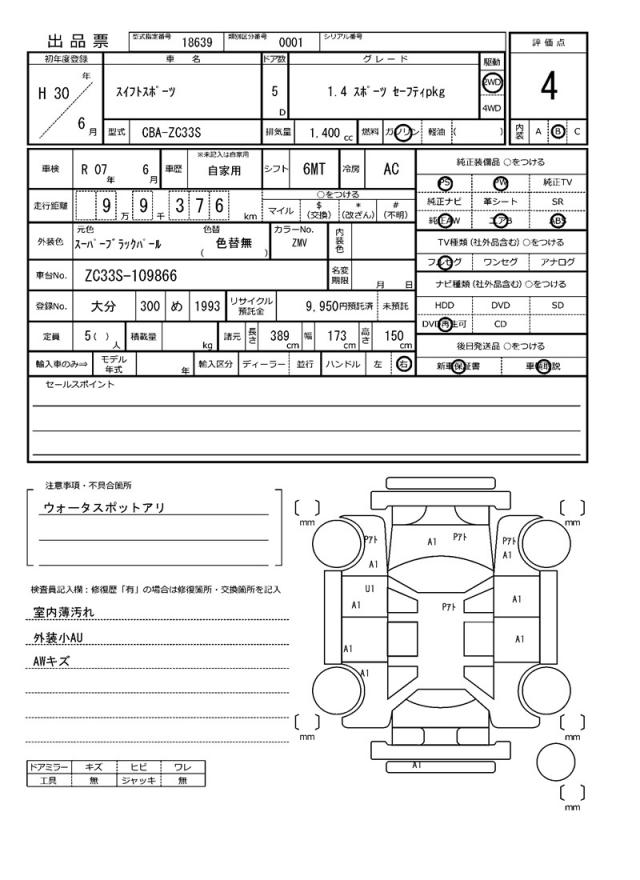 出品票 型式指定番号 18639 類別区分番号 0001 シリアル番号
評価点
4
内装 A B C
初年度登録 車名 ドア数 グレード 駆動
H 30 年 6 月 スイフトスポーツ 5 D 1.4 スポーツ セーフティpkg 2WD 4WD
型式 CBA-ZC33S 排気量 1,400 cc 燃料 ガソリン 軽油 ( )
車検 R 07 年 6 月 車歴 ※未記入は自家用 自家用 シフト 6MT 冷房 AC
走行距離 9 万 9 千 3 7 6 km ○をつける マイル $ (交換) * (改ざん) # (不明)
外装色 元色 スーパーブラックパール 色替 ( 色替無 ) カラーNo. ZMV 内装色
車台No. ZC33S-109866 名変期限 月 日
登録No. 大分 300 め 1993 リサイクル預託金 9,950円預託済 未預託
定員 5( ) 人 積載量 kg 諸元 長さ 389 cm 幅 173 cm 高さ 150 cm
輸入車のみ⇒ モデル年式 年 輸入区分 ディーラー 並行 ハンドル 左 右
純正装備品 ○をつける
PS PW 純正TV
純正ナビ 革シート SR
純正AW エアB ABS
TV種類 (社外品含む) ○をつける
フルセグ ワンセグ アナログ
ナビ種類 (社外品含む) ○をつける
HDD DVD SD
DVD再生可 CD
後日発送品 ○をつける
新車保証書 車輌取説
セールスポイント
注意事項・不具合箇所
ウォータスポットアリ
検査員記入欄：修復歴「有」の場合は修復箇所・交換箇所を記入
室内薄汚れ
外装小AU
AWキズ
ドアミラー キズ ヒビ ワレ
工具 無 ジャッキ 無
mm mm
Pアト A1 Pアト Pアト
A1 A1
U1 A1 Pアト A1
A1 A1
A1
mm mm
A1
mm